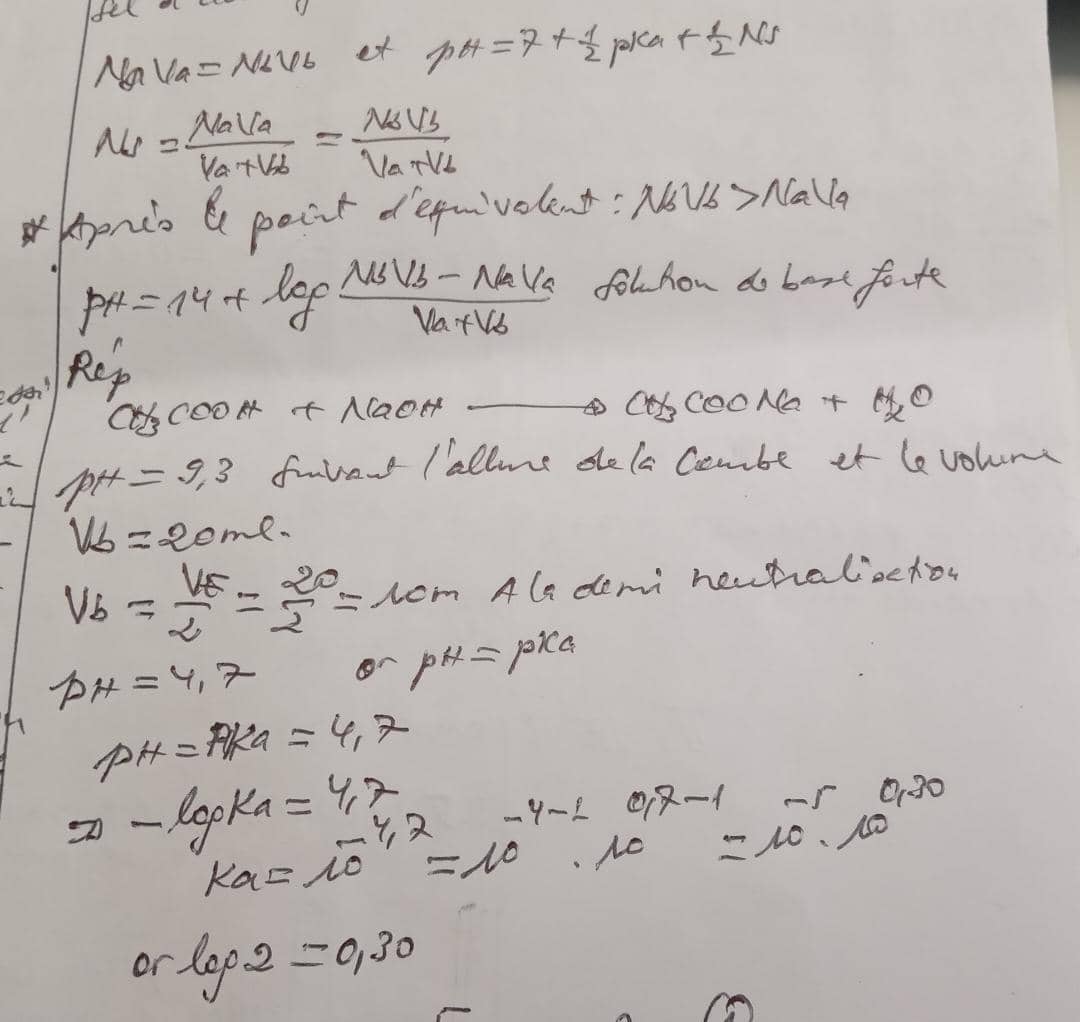 sel
NaVa = NbVb et pH = 7 + 1/2 pKa + 1/2 Ns
Ns = NaVa/(Va+Vb) = NbVb/(Va+Vb)
* Après le point d'équivalent : NbVb > NaVa
pH = 14 + log (NbVb - NaVa)/(Va+Vb) solution de base forte
Rép
CH3COOH + NaOH → CH3COONa + H2O
pH = 9,3 suivant l'allure de la Courbe et le volume
Vb = 20ml.
Vb = VE/2 = 20/2 = 10m A la demi neutralisation
pH = 4,7 or pH = pKa
pH = pKa = 4,7
=> - log Ka = 4,7
Ka = 10^-4,7 = 10^-4-1 . 10^0,7-1 = 10^-5 . 10^0,30
or log 2 = 0,30